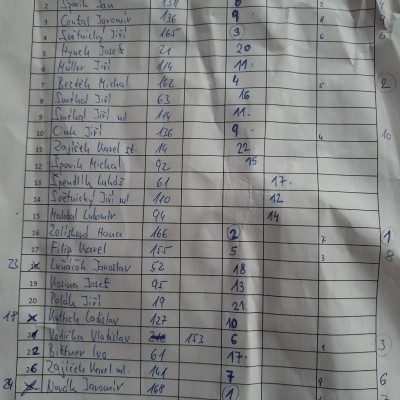 2 Špavik Jan 138 8
3 Conťal Jaromír 136 9 8
4 Světnický Jiří 165 3 6
5 Hynek Josef 21 20
6 Müller Jiří 114 11.
7 Bezděk Michal 162 4 5 2
8 Smékal Jiří 63 16
9 Smékal Jiří ml. 114 11.
10 Cink Jiří 136 9. 4 10
11 Zajíček Karel st. 14 22
12 Špavik Michal 92 15
13 Lukáš 61 17.
14 Světnický Jiří ml 110 12
15 Lubomír 94 14
16 Hana 166 2 7 1
17 Filip Karel 155 5 3 8
23 Jaroslav 52 18
19 Josef 95 13
20 Polák Jiří 19 21
18 Ladislav 127 10
Vodička Vladislav 153 6 3
22 Bittner Ivo 61 17.
Zajíček Karel ml. 141 7 6
24 Novák Jaromír 168 1 7